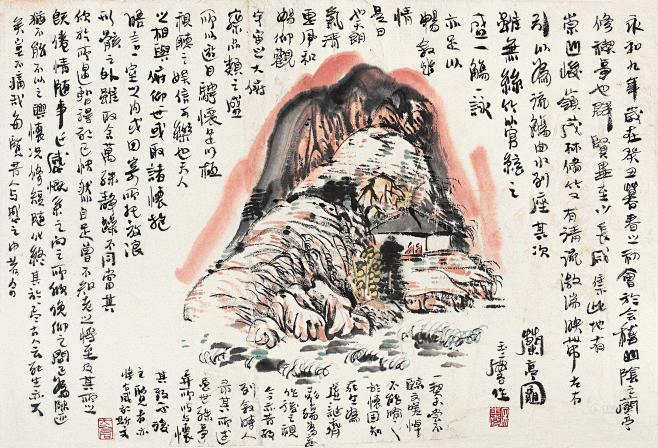 永和九年歲在癸丑暮春之初會於會稽山陰之蘭亭
修禊事也群賢畢至少長咸集此地有
崇山峻嶺茂林修竹又有清流激湍映帶左右
引以為流觴曲水列座其次
雖無絲竹管絃之
盛一觴一詠
亦足以
暢敘幽
情
是日
也天朗
氣清
惠風和
暢仰觀
宇宙之大俯
察品類之盛
所以遊目騁懷足以極
視聽之娛信可樂也夫人
之相與俯仰一世或取諸懷抱
晤言一室之內或因寄所託放浪
形骸之外雖取舍萬殊靜躁不同當其
欣於所遇暫得於己快然自足曾不知老之將至及其所之
既倦情隨事遷感慨係之向之所欣俛仰之間已為陳迹
猶不能不以之興懷況修短隨化終期於盡古人云死生亦大
矣豈不痛哉每覽昔人興感之由若合
一契未嘗不
臨文嗟悼
不能喻之
於懷固知
一死生為
虛誕齊
彭殤為妄
作後之視
今亦猶今
列敘時人
錄其所述
雖世殊事
異所以興懷
其致一也後
之覽者亦
將有感於斯文
蘭亭圖
作